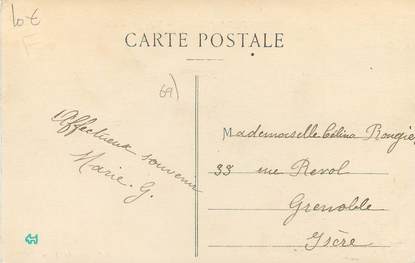 10 €
F
CARTE POSTALE
69)
Affectueux souvenir
Marie. G.
Mademoiselle Célina Rougier
33 rue Revol
Grenoble
Isère